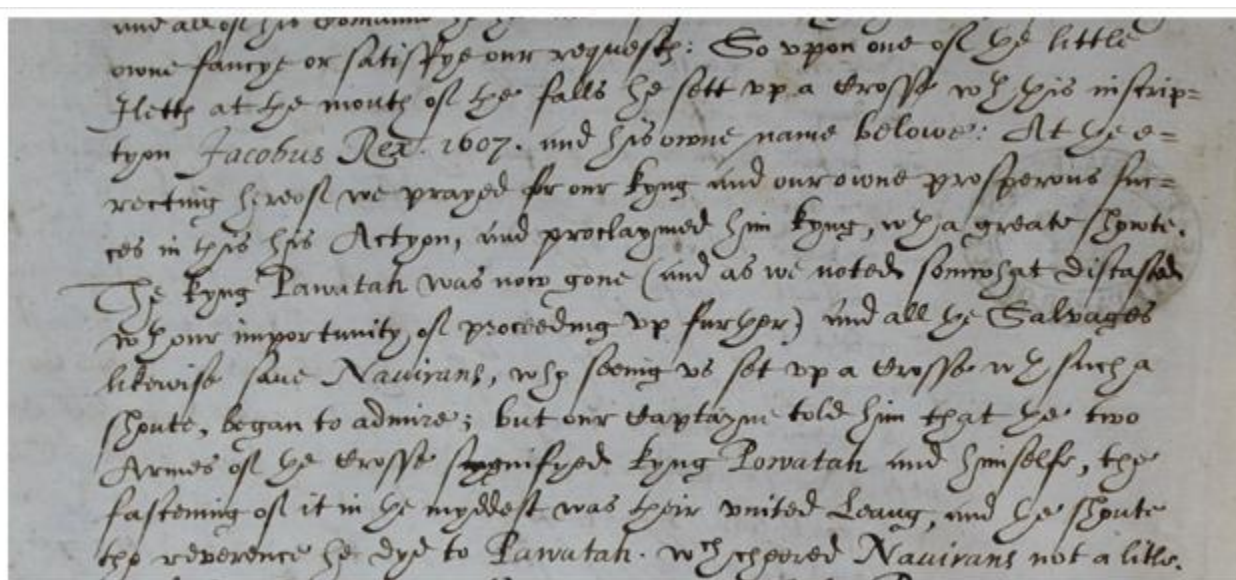 and all of his
owne fancye or satisfye our request: So vpon one of the little
Iletts at the mouth of the falls he sett vp a Crosse wth this inscrip=
tyon Jacobus Rex. 1607. and his owne name belowe: At the e=
recting hereof we prayed for our kyng and our owne prosperous suc=
ces in this his Actyon, and proclaymed him kyng, wth a greate showte.
The kyng Pawatah was now gone (and as we noted somwhat distasted
wth our importunity of proceeding vp further) and all the Salvages
likewise save Nauirans, who seeing vs set vp a Crosse wth such a
shoute, began to admire; but our Captayne told him that the two
Armes of the Crosse signifyed kyng Powatah and himselfe, the
fastening of it in the myddest was their vnited Leaug, and the shoute
the reverence he dyd to Pawatah. wch cheered Nauirans not a litle.